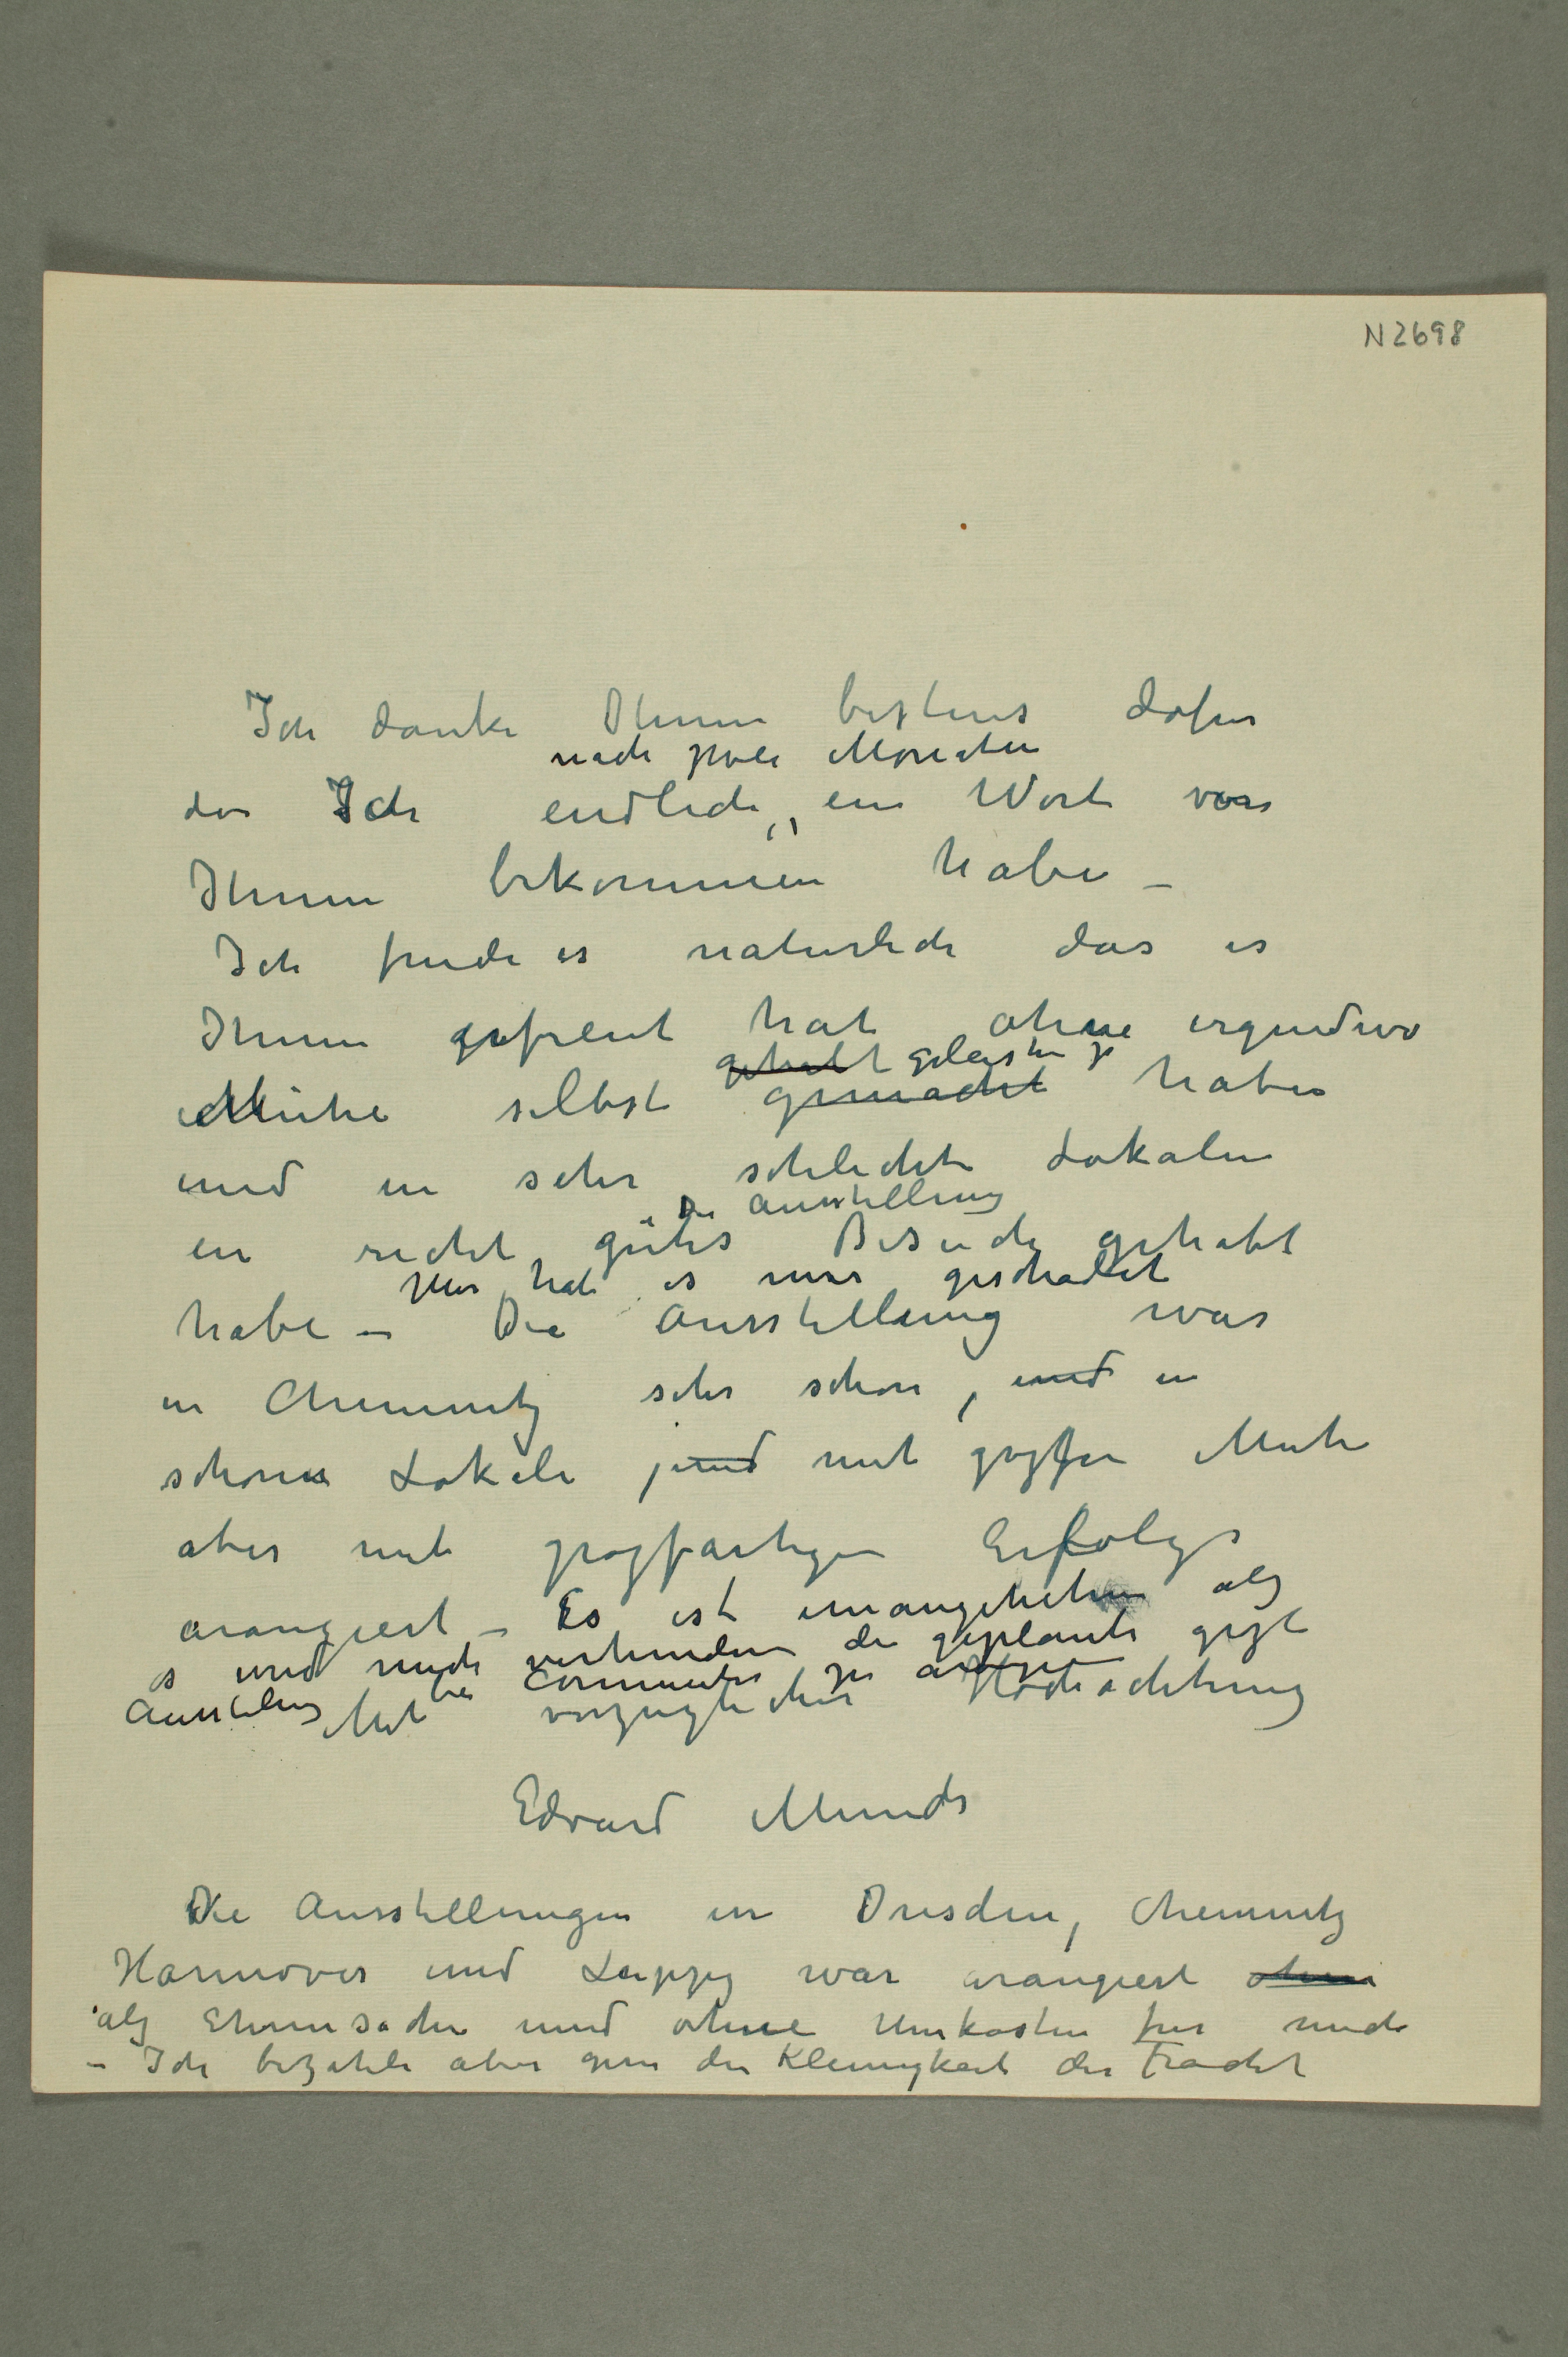 N 2698
Ich danke Ihnen bestens dafur
nach zwei Monaten
das Ich endlich, ein Wort von
Ihnen bekommen habe –
Ich finde es naturlich das es
Ihnen gefreut hat ohne irgendwo
gehabt geleistet zu
Mühe selbst gemacht haben
und in sehr schlechte Lokalen
Die Ausstellung
ein recht gutes Besuch gehabt
Mir hat es nur geschadet
habe – Die Ausstellung war
in Chemnitz sehr schön, und in
schönen Lokale, und mit grosser Muhe
aber mit grossartigen Erfolge
arangiert – Es ist unangenehm als
es und mich verhindern die geplante
Ausstelung bei Commeter zu
Mit vorzuglicher Hochachtung
Edvard Munch
Die Ausstellungen in Dresden, Chemnitz
Hannover und Leipzig war arangiert ohne
als Ehrensache und ohne Unkosten fur mich
– Ich bezahle aber gern die Kleinigkeit der Fracht